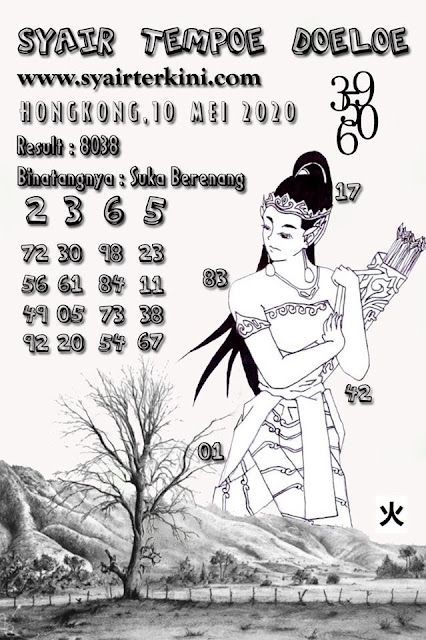 SYAIR TEMPOE DOELOE
www.syairterkini.com
HONGKONG,10 MEI 2020
Result : 8038
Binatangnya : Suka Berenang
2 3 6 5
39
50
6
17
72 30 98 23
56 61 84 11
49 05 73 38
92 20 54 67
83
42
01
火